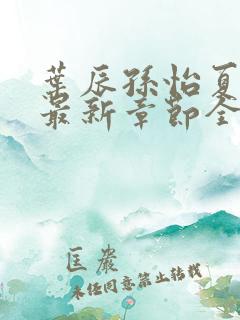 叶辰孙怡夏
最新章节全
匡岩
未经同意禁止转载